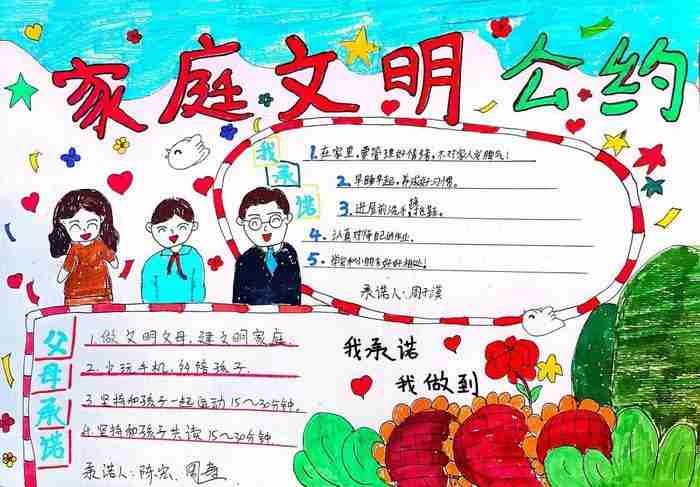 家庭文明公约
我承诺
1.在家里,要管理好情绪,不对家人发脾气!
2.早睡早起,养成好习惯。
3.进屋前洗手换鞋。
4.认真对待自己的作业。
5.学会和小朋友好好相处。
承诺人:周子淇
父母承诺
1.做文明父母,建文明家庭.
2.少玩手机,多陪孩子.
3.坚持和孩子一起运动15～30分钟。
4.坚持和孩子共读15～30分钟
承诺人:陈宏、周
我承诺
我做到